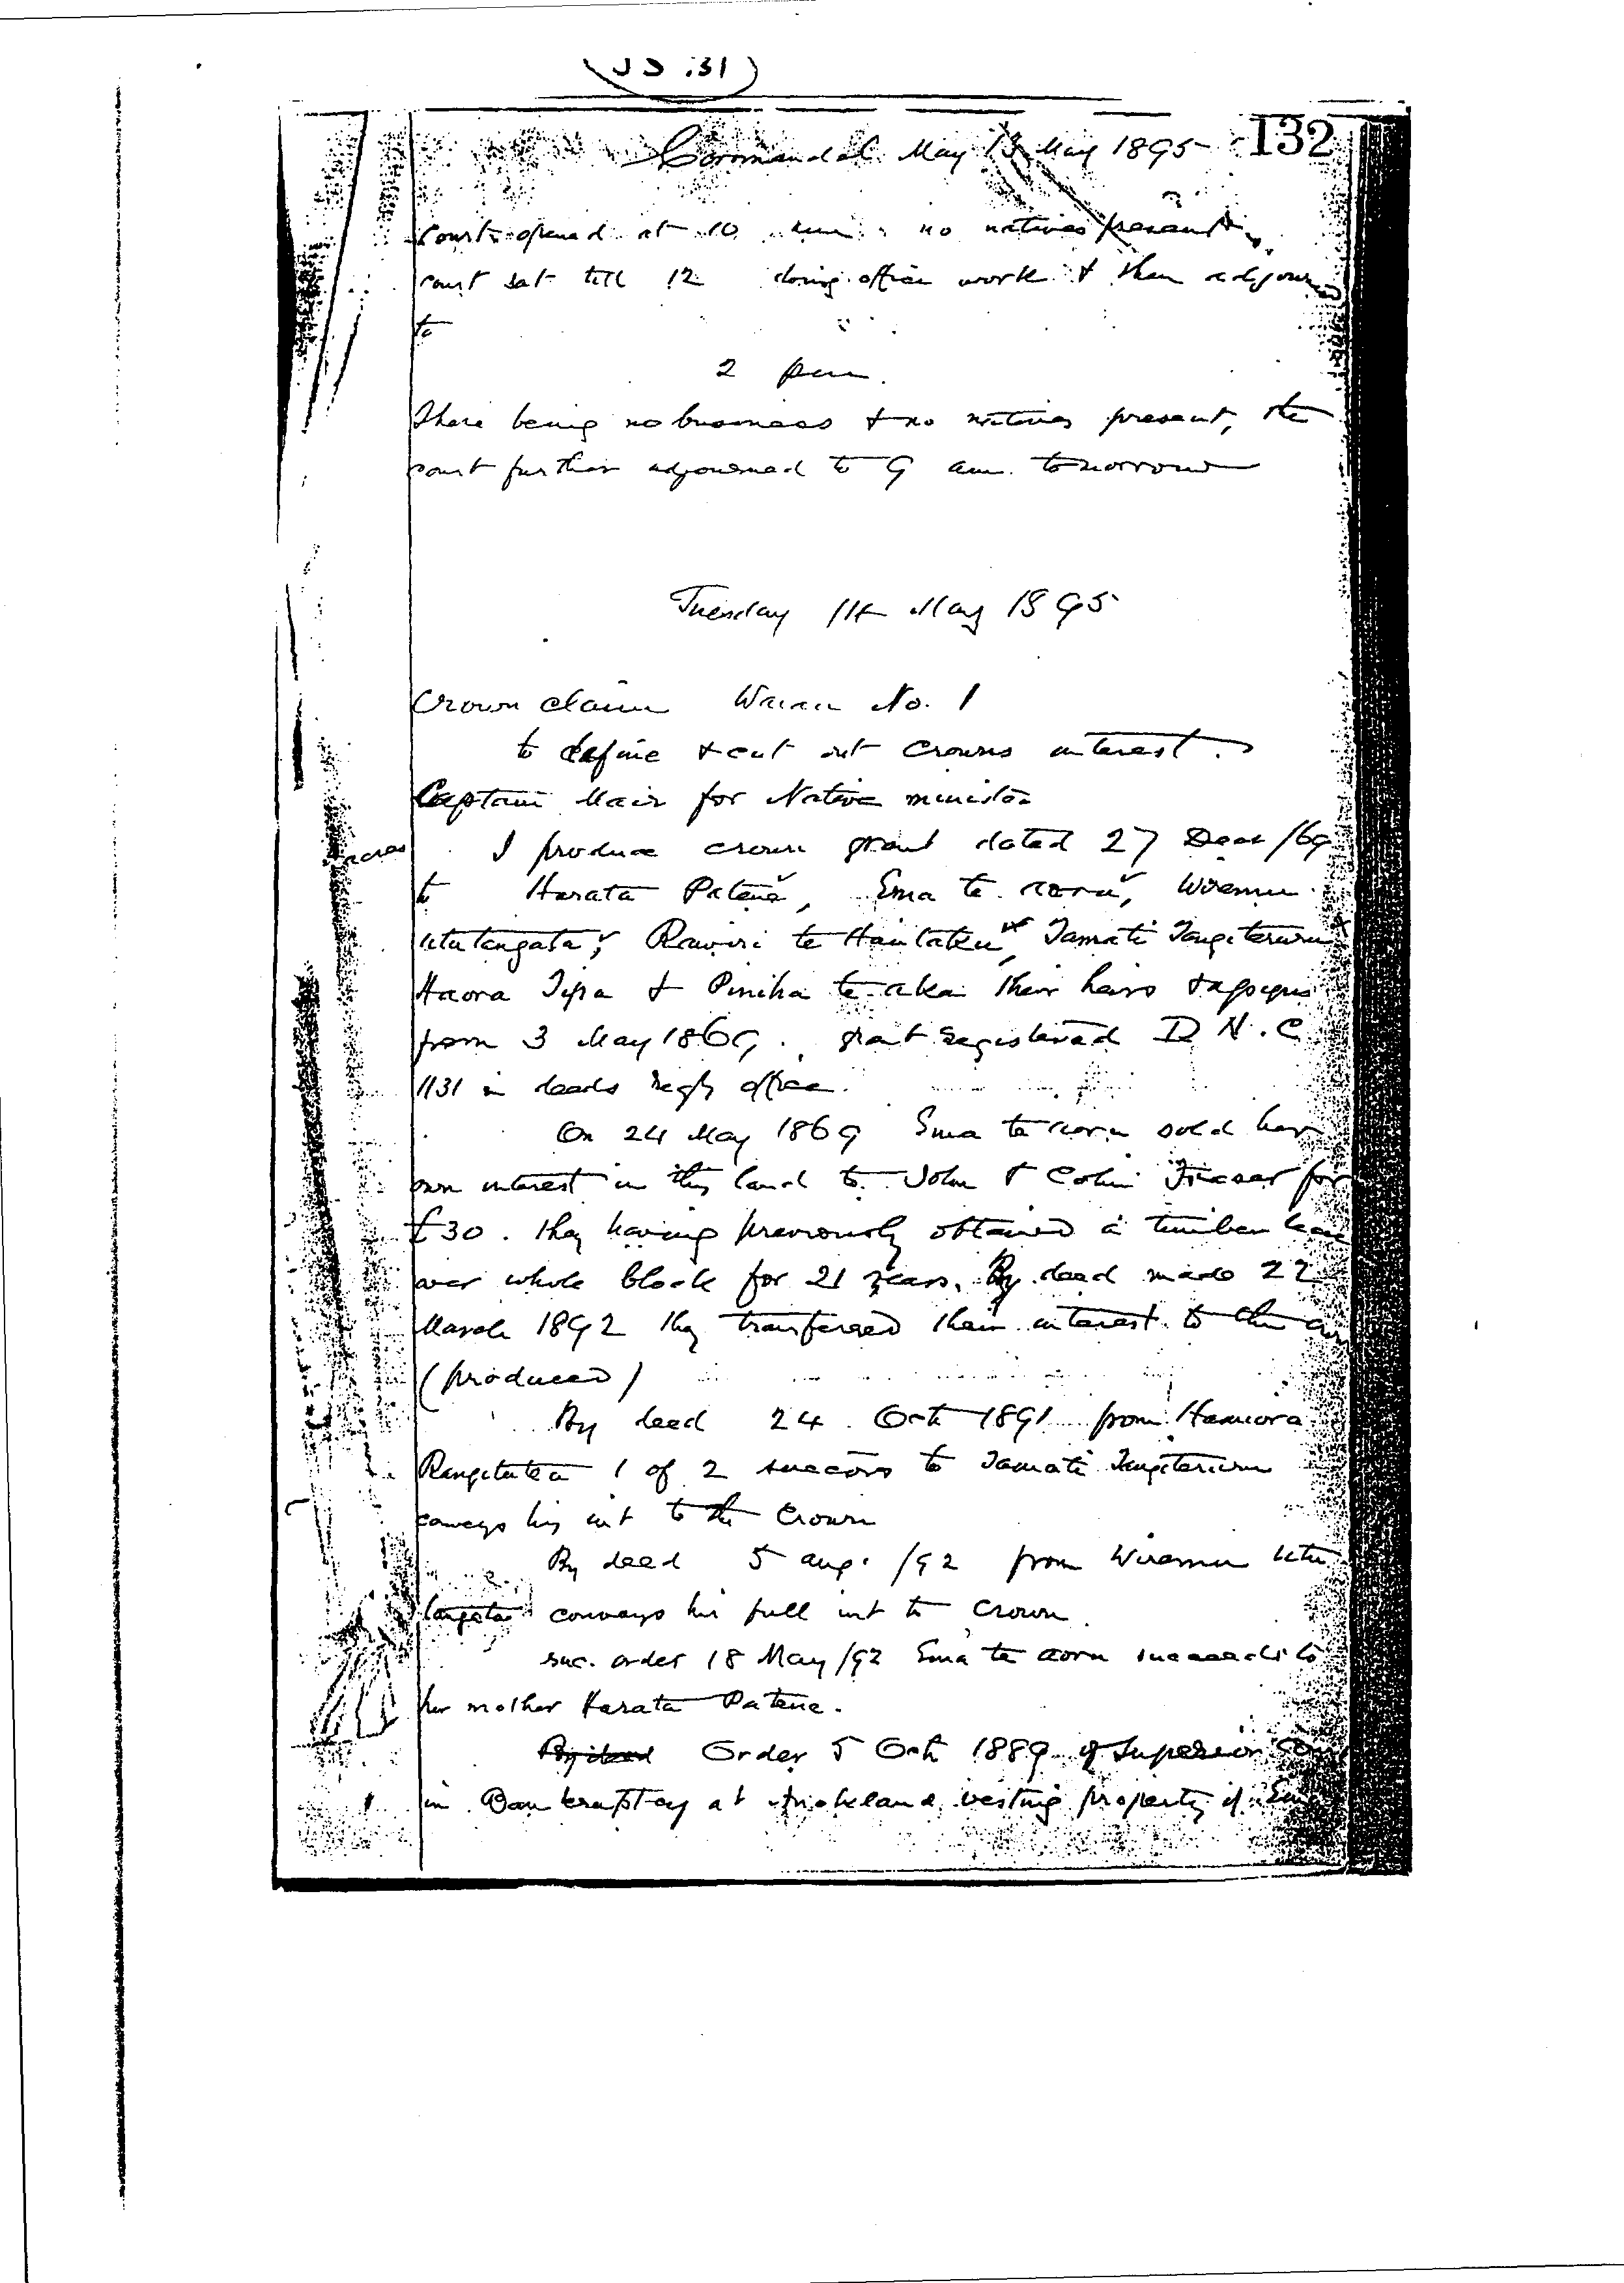 132
Coromandel May 13 May 1895
Court opened at 10 am. no natives present,
court sat till 12 doing office work & then adjourned
to
2 pm.
There being no business & no natives present, the
court further adjourned to 9 am. tomorrow
Tuesday 14 May 1895
Crown claim Waiau No. 1
to define & cut out Crowns interest.
Captain Mair for Native minister
acres
I produce crown grant dated 27 Decr /69
to Harata Patene, Ema te aoru, Wiremu
Ututangata, Rawiri te Hautaku, Tamati Tangiteruru
Haora Tipa & Piniha te aka their heirs & assigns
from 3 May 1869. grant registered D N. C
1131 in deeds regy office.
On 24 May 1869 Ema te aoru sold her
own interest in this land to John & Colin Fraser for
£30. they having previously obtained a timber lease
over whole block for 21 years. By deed made 22
March 1892 they transferred their interest to the
(produced)
By deed 24 Oct 1891 from Hamiora
Rangitutea 1 of 2 succors to Tamati Tangiteruru
conveys his int to the Crown
By deed 5 aug. /92 from Wiremu Utu
tangata conveys his full int to Crown.
suc. order 18 May /92 Ema te aoru succeeds to
her mother Harata Patene.
By deed Order 5 Oct 1889 of Superior
in Bankruptcy at Auckland vesting property of Ema